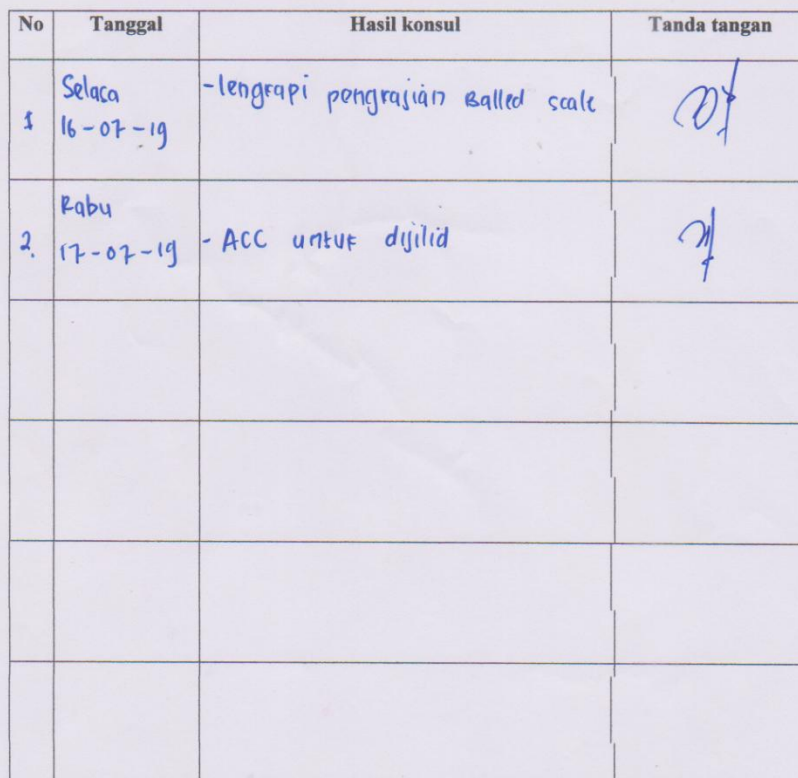 No Tanggal Hasil konsul Tanda tangan
1 Selasa -lengkapi pengkajian Balled scale
16-07-19
2. Rabu
17-07-19 - ACC untuk dijilid